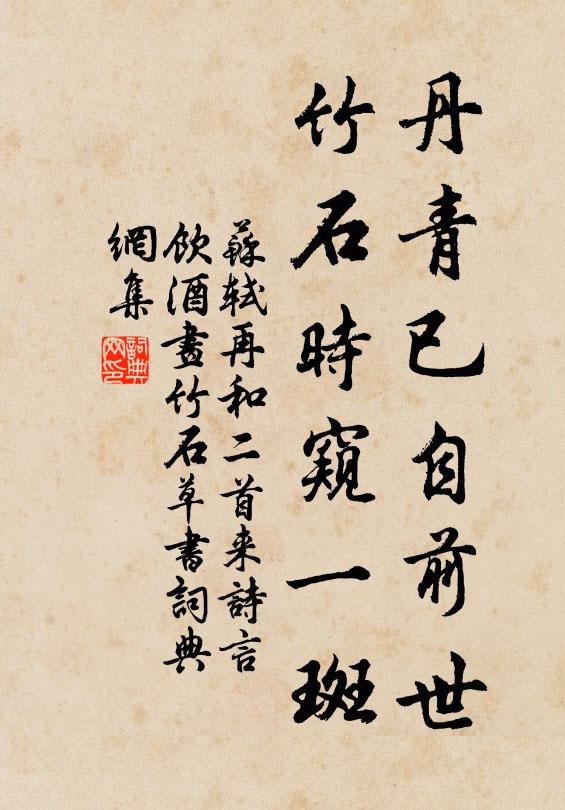 丹青已自前世
竹石時窺一斑
蘇軾再和二首来詩言
飲酒畫竹石草書詞典
網集
詞典
网印